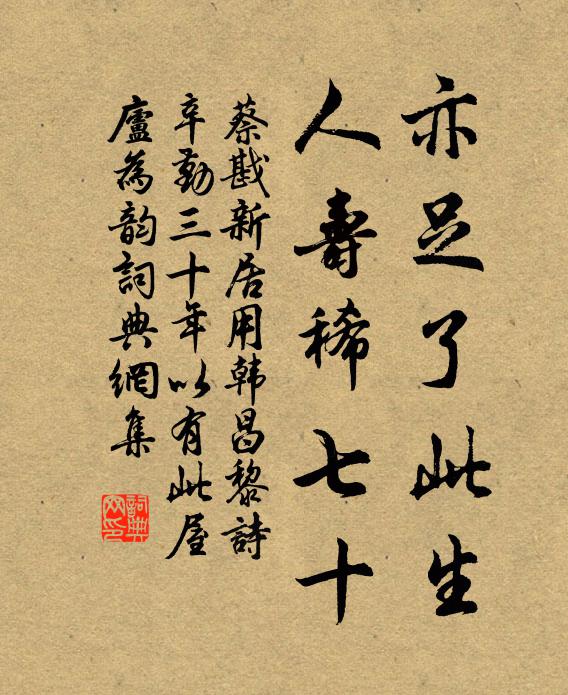 亦足了此生
人壽稀七十
蔡戡新居用韩昌黎詩
辛勤三十年以有此屋
廬為韵詞典網集
詞典
网印